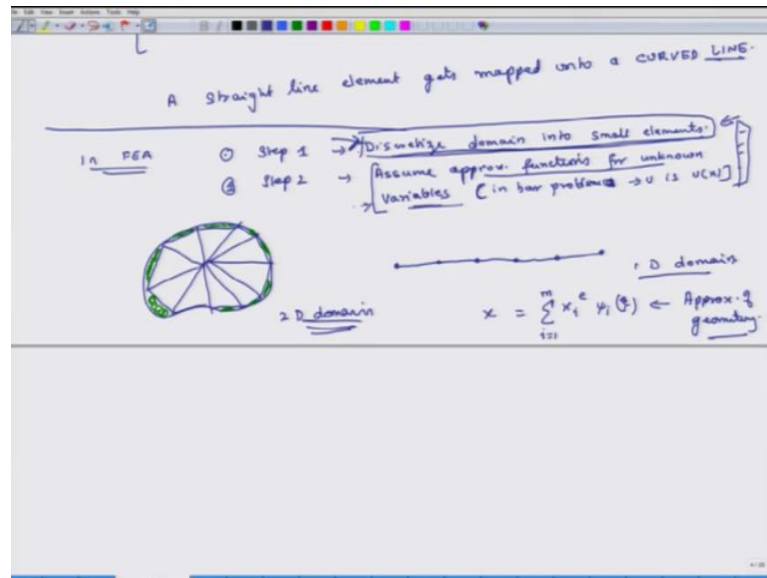 A straight line element gets mapped onto a CURVED LINE.
In FEA
① Step 1 → Discretize domain into small elements.
② Step 2 → Assume approx. functions for unknown
Variables (in bar problem → u is u(x)]
1 D domain
2 D domain
x = Σ x_i^e ψ_i(ξ) ← Approx. of
geometry.
m
i=1